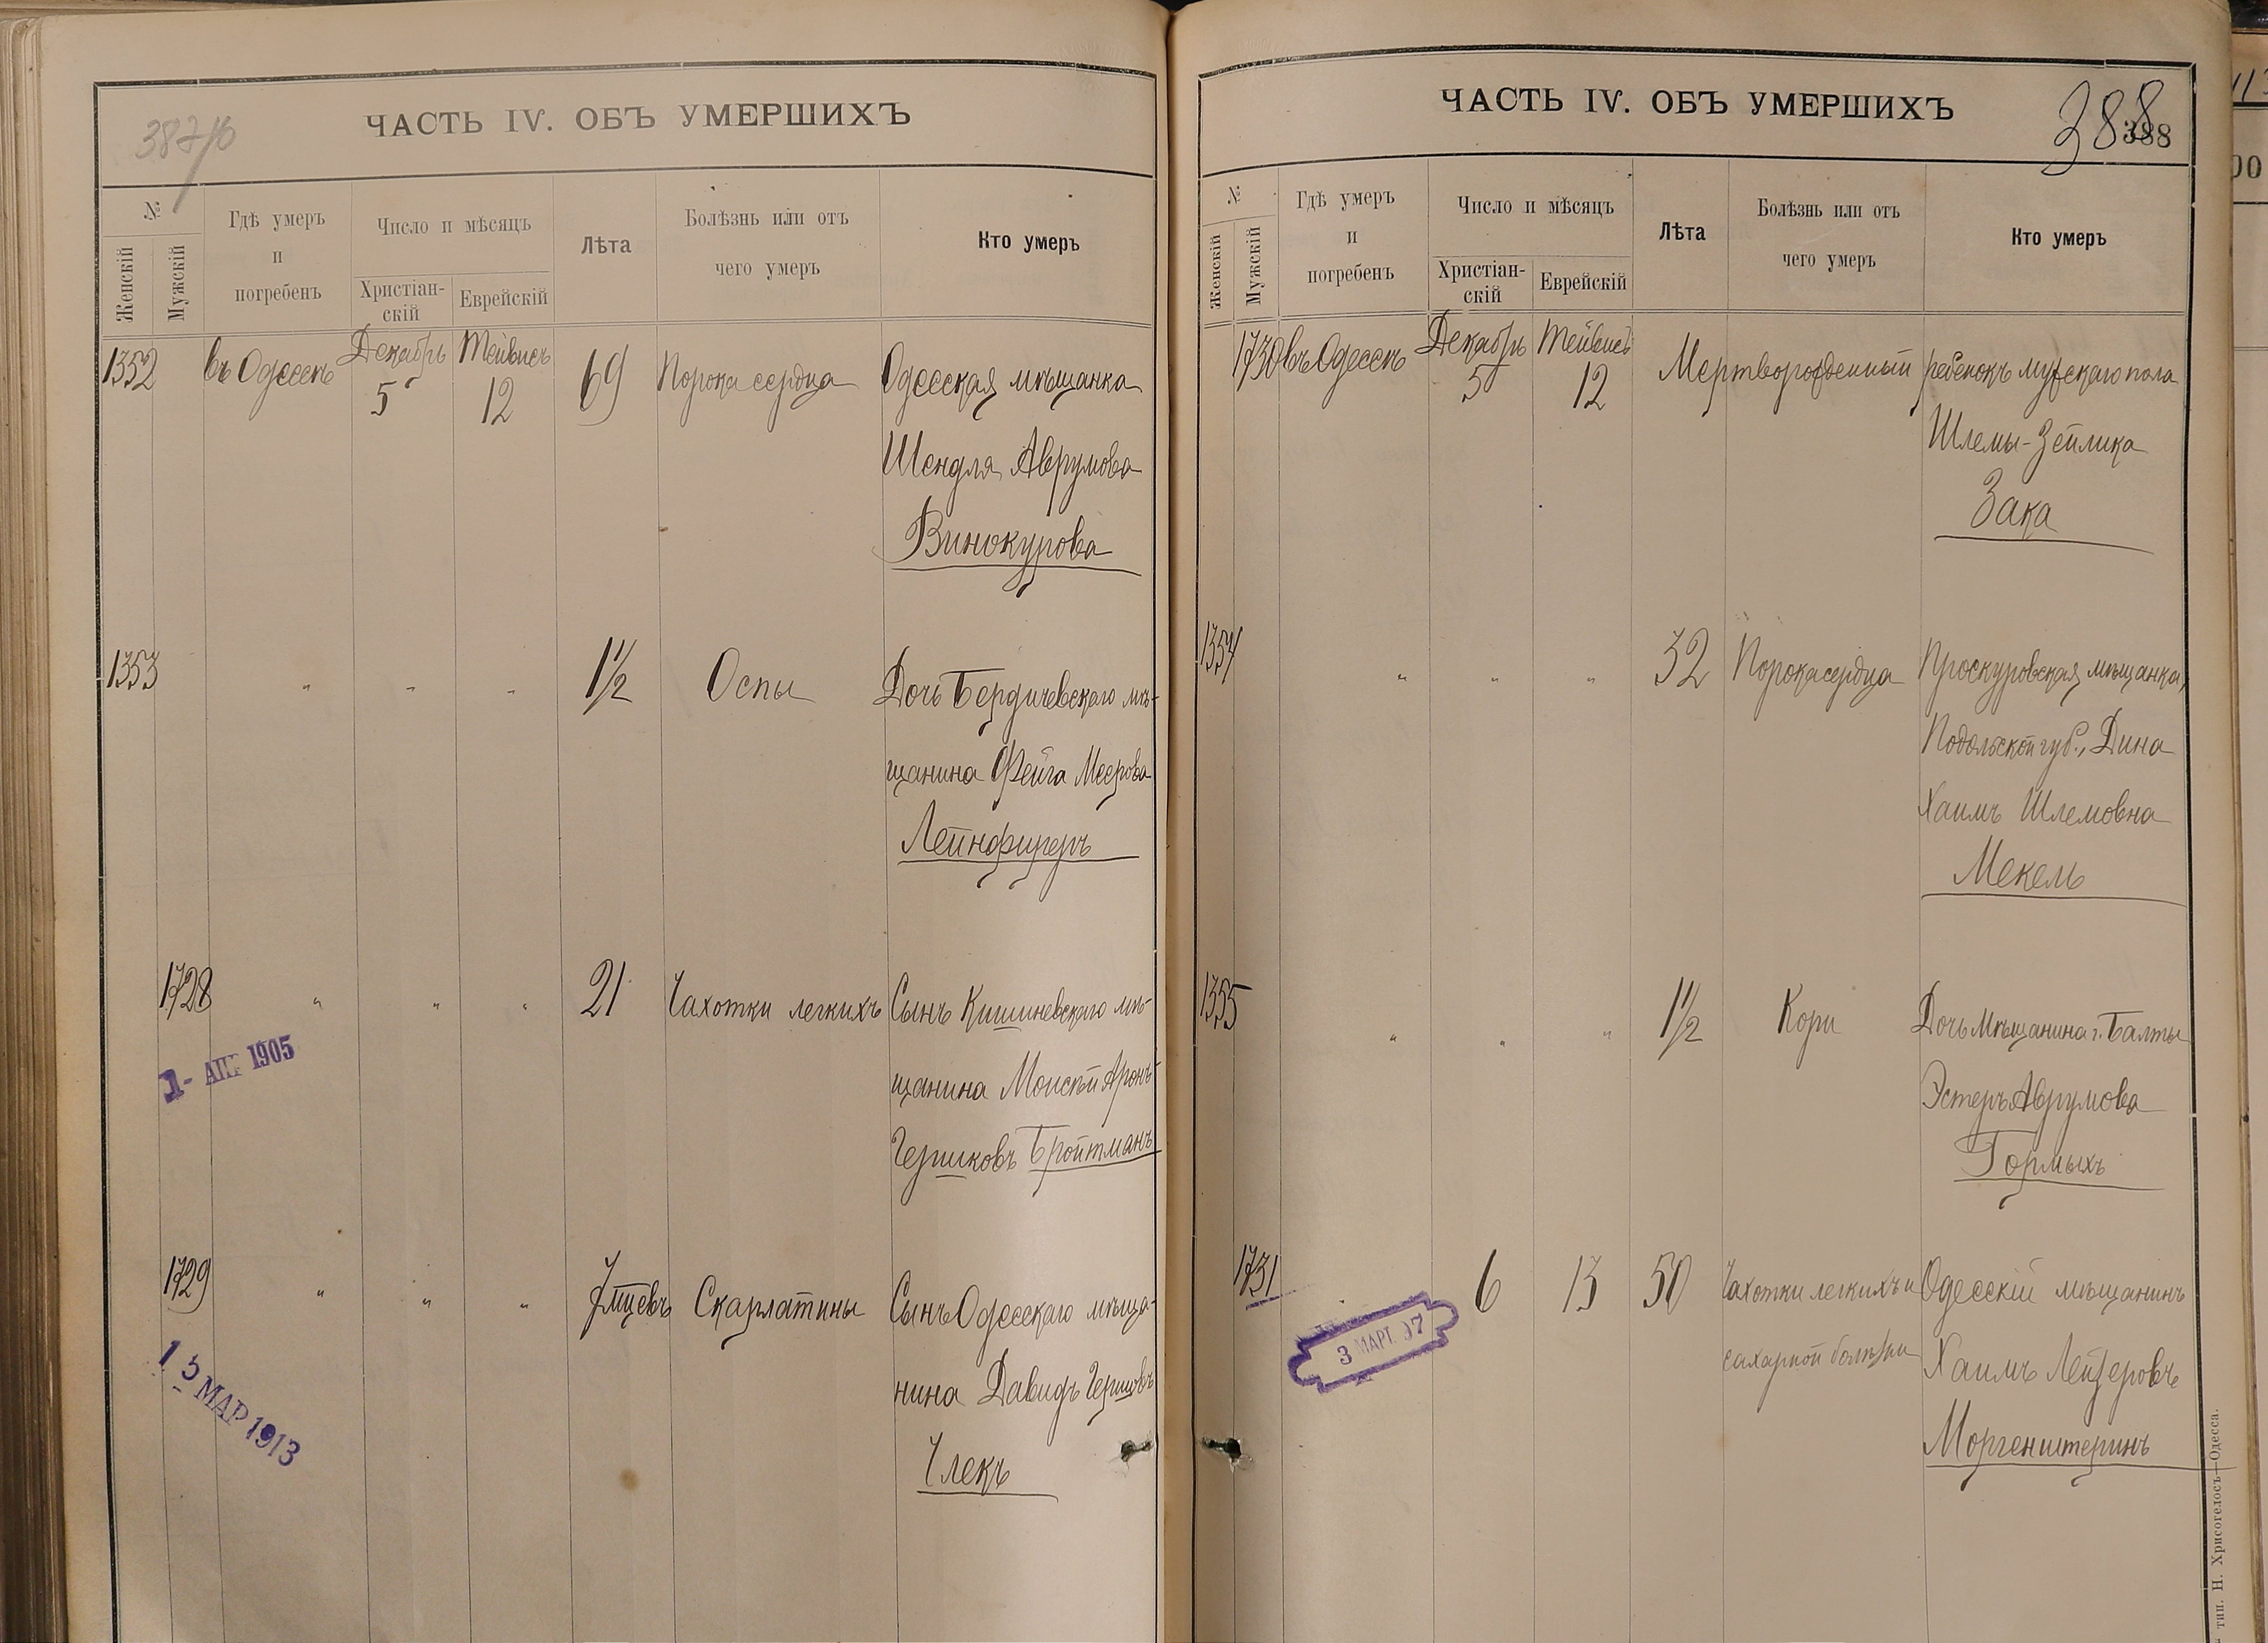 387/б
ЧАСТЬ IV. ОБЪ УМЕРШИХЪ
№
Женскій
Мужскій
Гдѣ умеръ
и
погребенъ
Число и мѣсяцъ
Христіан-
скій
Еврейскій
Лѣта
Болѣзнь или отъ
чего умеръ
Кто умеръ
1352 въ Одессѣ Декабрь 5 Тейвисъ 12 69 Порока сердца Одесская мѣщанка
Шендля Аврумова
Винокурова
1353 " " " 1½ Оспы Дочь Бердичевскаго мѣ-
щанина Фейга Меерова
Лейнфигеръ
1728 " " " 21 Чахотки легкихъ Сынъ Кишиневскаго мѣ-
щанина Моисѣй Аронъ-
Гершковъ Бройтманъ
1- АПР. 1905
1729 " " " 7 мцевъ Скарлатины Сынъ Одесскаго мѣща-
нина Давидъ Гершовъ
Члекъ
15 МАР 1913
ЧАСТЬ IV. ОБЪ УМЕРШИХЪ
388
388
№
Женскій
Мужскій
Гдѣ умеръ
и
погребенъ
Число и мѣсяцъ
Христіан-
скій
Еврейскій
Лѣта
Болѣзнь или отъ
чего умеръ
Кто умеръ
1730 въ Одессѣ Декабрь 5 Тейвисъ 12 Мертворожденный ребенокъ мужскаго пола
Шлемы-Зейлика
Зака
1354 " " " 32 Порока сердца Проскуровская мѣщанка,
Подольской губ., Дина
Хаимъ Шлемовна
Мекель
1355 " " " 1½ Кори Дочь Мѣщанина г. Балты
Эстеръ Аврумова
Гормыхъ
1731 " 6 13 50 Чахотки легкихъ и Одесскій мѣщанинъ
сахарной болѣзни Хаимъ Лейзеровъ
Моргенштернъ
3 МАРТ. 07
тип. Н. Хрисогелосъ—Одесса.